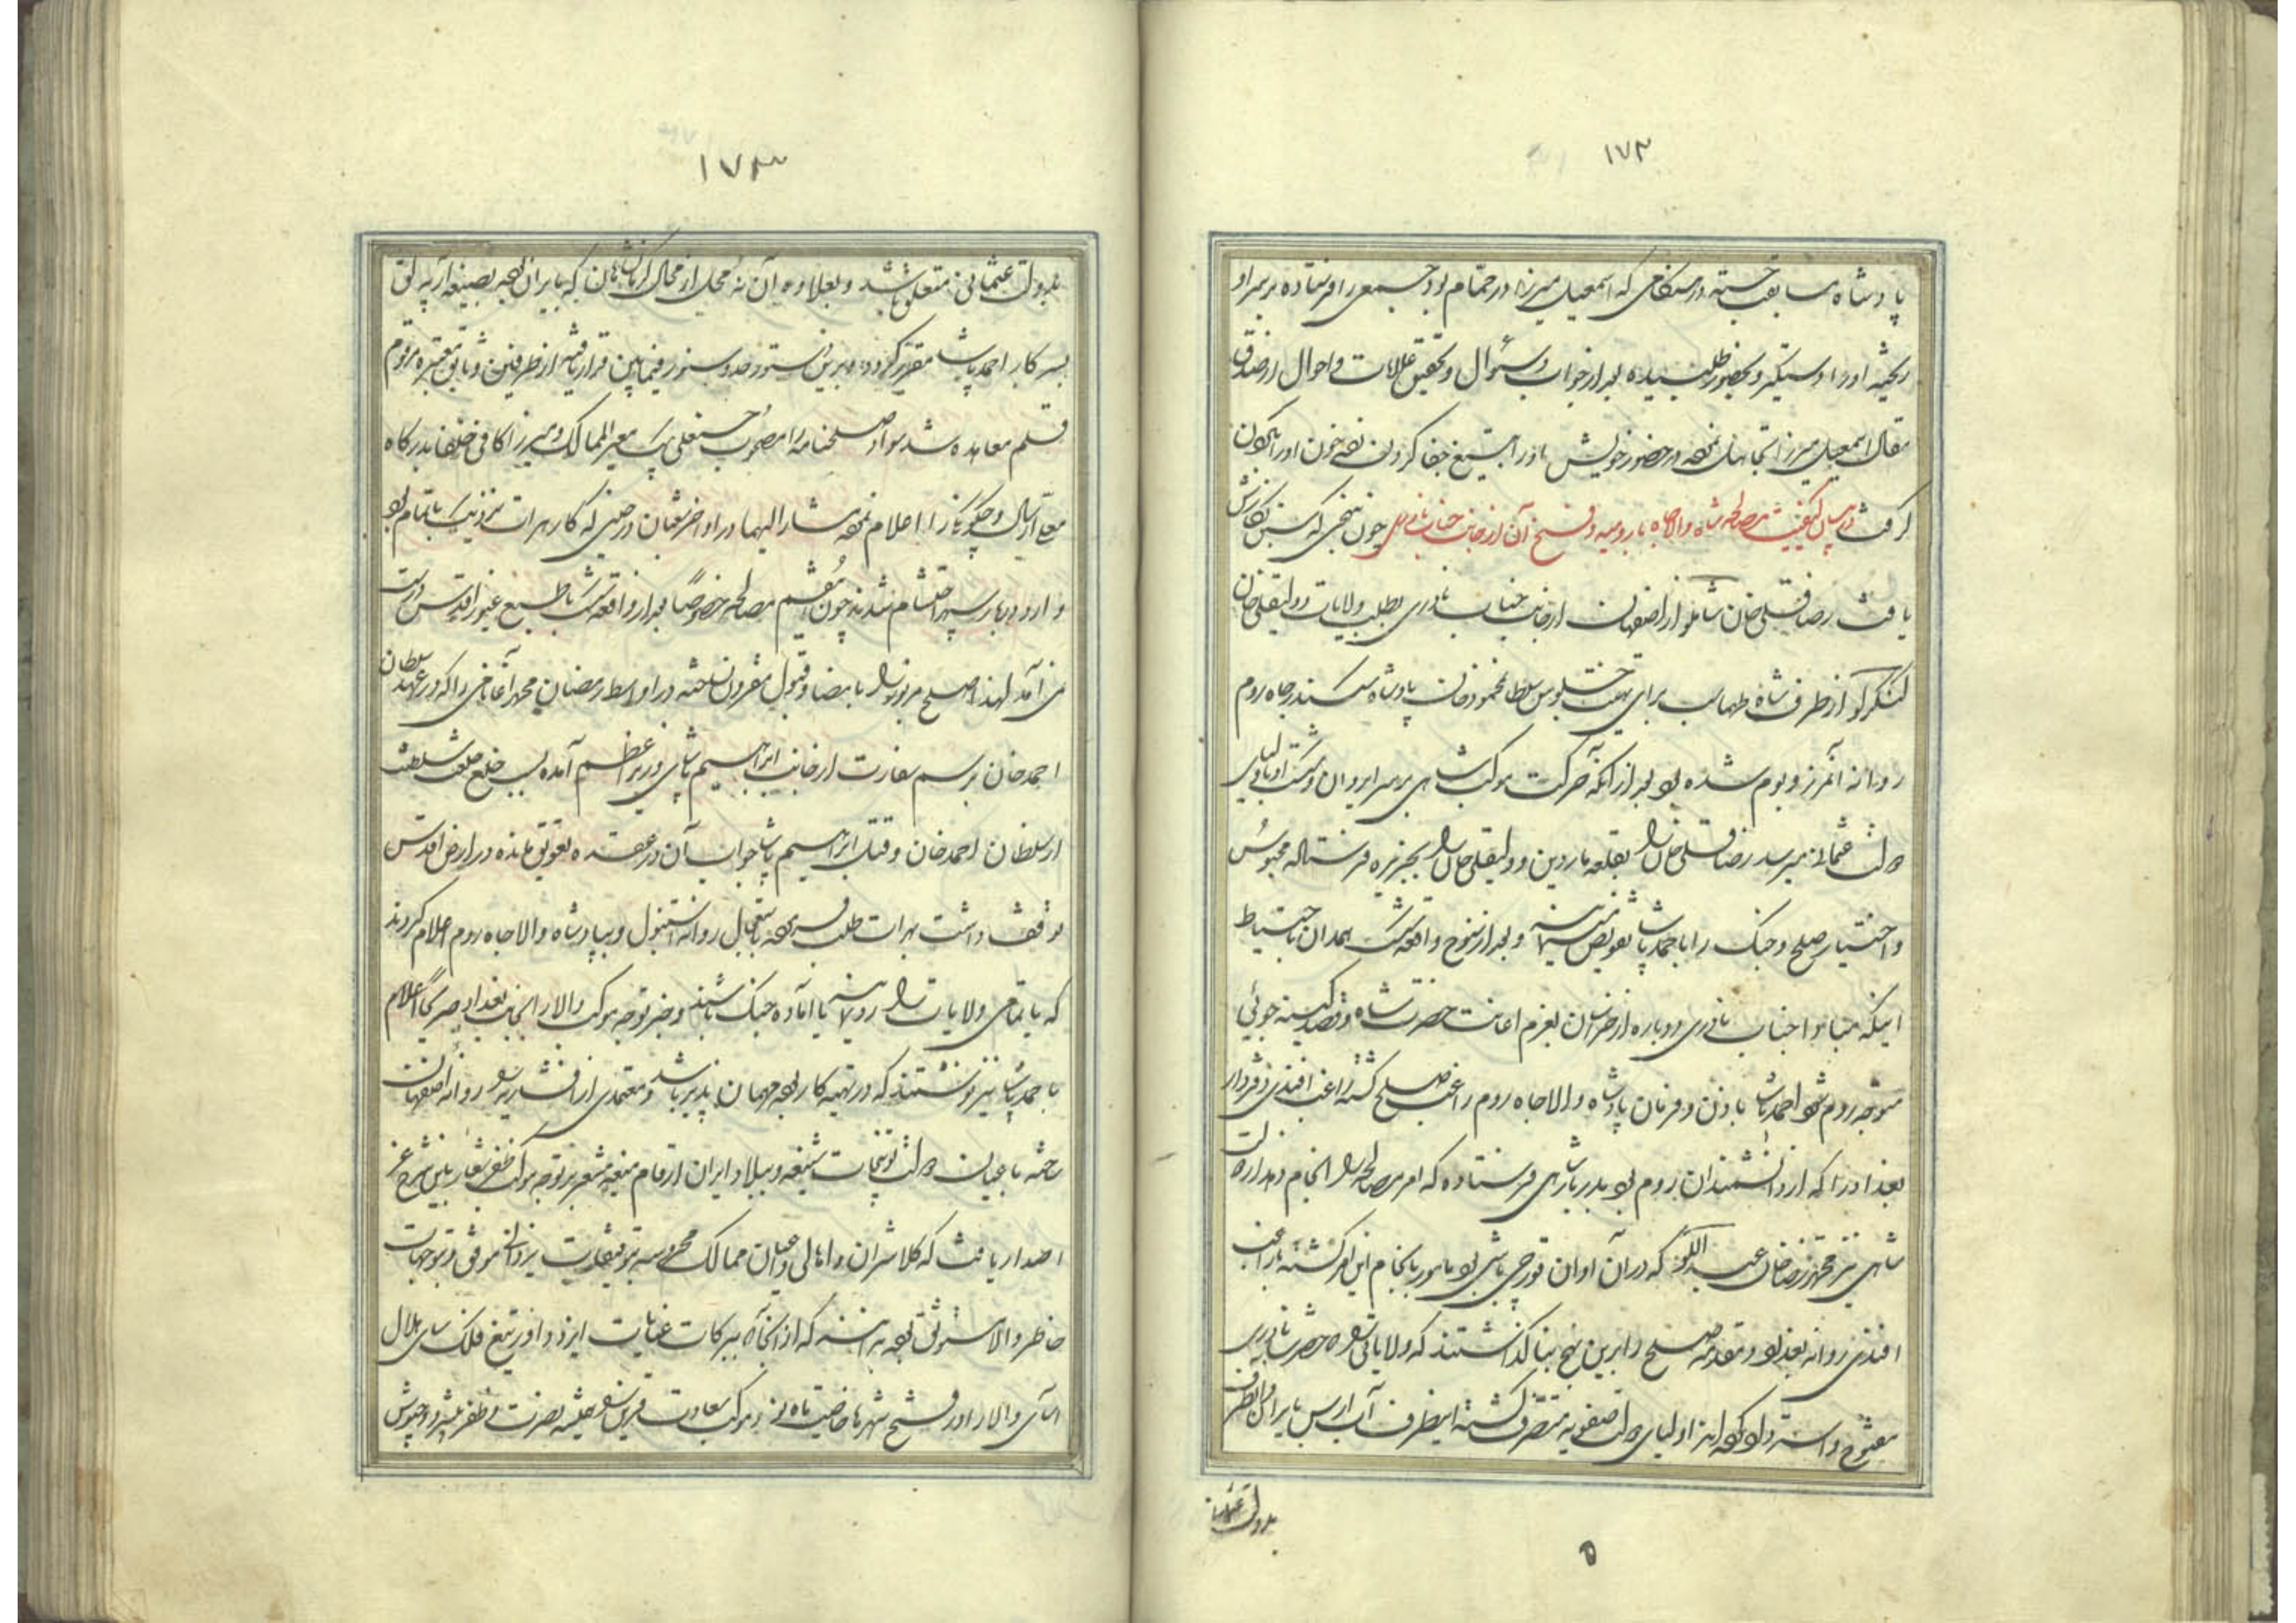 ۱۷۲
پادشاه سابقت جسته در هنگامی که اسمعیل میرزا در حمام بود جمعی را فرستاده بر سر او
ریخته او را دستگیر و بحضور طلبیده بعد از جواب و سئوال و تحقیق علامات و احوال از صدق
مقال اسمعیل میرزا تجاهل نموده در حضور خویش او را بتیغ جفا گردن زده خون او را بگردن
گرفت در بیان کیفیت مصالحه شاه والاجاه با رومیه و فسخ آن از جانب جناب نادری چون بنهجی که سبق نگارش
یافت رضاقلی خان شاملو از اصفهان از جانب جناب نادری بطلب ولایات و ولیقلی خان
کنگرلو از طرف شاه طهماسب برای تهنیت جلوس سلطان محمود خان پادشاه سکندر جاه روم
روانه آنمرز و بوم شده بود بعد از آنکه حرکت موکب شاهی بر سر ایروان و شکست او باولیای
دولت عثمانی میرسد رضاقلی خان را بقلعه ماردین و ولیقلی خان را بجزیره فرستاده محبوس
و اختیار صلح و جنگ را باحمد پاشا تفویض مینمایند و بعد از سنوح واقعه شکست همدان باحتیاط
اینکه مبادا جناب نادری دوباره از خراسان بعزم اعانت حضرت شاه و قصد کینه جوئی
متوجه روم شود احمد پاشا باذن و فرمان پادشاه والاجاه روم راغب صلح گشته راغب افندی دفتردار
بغداد را که از دانشمندان روم بود بدربار شاهی فرستاده که امر مصالحه را انجام دهد از دولت
شاهی نیز محمد رضا خان عبداللو که در آن اوان قورچی باشی بود مامور بانجام این امر گشته با راغب
افندی روانه بغداد و مقدمه صلح را بدین نهج بنا گذاشتند که ولایاتی را که حضرت نادری
مفتوح و استرداد کرده اند اولیای دولت صفویه متصرف گشته اینطرف آب ارس بایران و آنطرف
بدولت عثمانی
۵
۱۷۳
بدولت عثمانی متعلق باشد و بعلاوه آن نه محل از محال کرمانشاهان که بایران بصیغه ارپه لق
بسرکار احمد پاشا مقرر گردد و برین دستور حدود و سنور فیمابین قرار یافته از طرفین وثایق معتبره مرقوم
قلم معاهده شد سواد صلحنامه را مصحوب حسنعلی بیک معیر الممالک و میرزا کافی خلفا بدرگاه
معلی ارسال و چگونگی را اعلام نموده مشار الیهما در اواخر شعبان در حینی که کار هرات نزدیک باتمام بود
وارد دربار سپهر احتشام شدند چون اینقسم مصالحه خصوصا بعد از واقعه شکست با طبع غیور اقدس درست
نمی آمد لهذا صلح مزبور را بامضا و قبول مقرون نساخته در اواسط رمضان محمد آقا نامی را که در عهد سلطان
احمد خان برسم سفارت از جانب ابراهیم پاشای وزیر اعظم آمده بسبب خلع خلعت سلطنت
از سلطان احمد خان و قتل ابراهیم پاشا جواب آن در عقده تعویق مانده در ارض اقدس
توقف داشت بهرات طلب فرموده باستعجال روانه استنبول و بپادشاه والاجاه روم اعلام کردند
که یا تمامی ولایات را رد نمایند یا آماده جنگ باشند و خبر توجه موکب والا را بجانب بغداد صریحا اعلام
باحمد پاشا نیز نوشتند که در تهیه کار بوده مهمان پذیر باشد و معتمدی از افشاریه را روانه اصفهان
ساخته باعیان دولت توبیخات شنیعه و ببلاد ایران ارقام منیعه مشعر بر توجه موکب ظفر شعار باین شرح عز
اصدار یافت که کلانتران و اهالی و اعیان ممالک محروسه بتوفیقات یزدانی موفق و بتوجهات
خاطر والا مستوثق بوده بدانند که از آنجا که ببرکات عنایات ایزد داور تیغ فلک سای هلال
آسای والا را در فتح شهرها خاصیت ماه نو و موکب سعادت قرین را همیشه نصرت و ظفر پیشرو جیوش